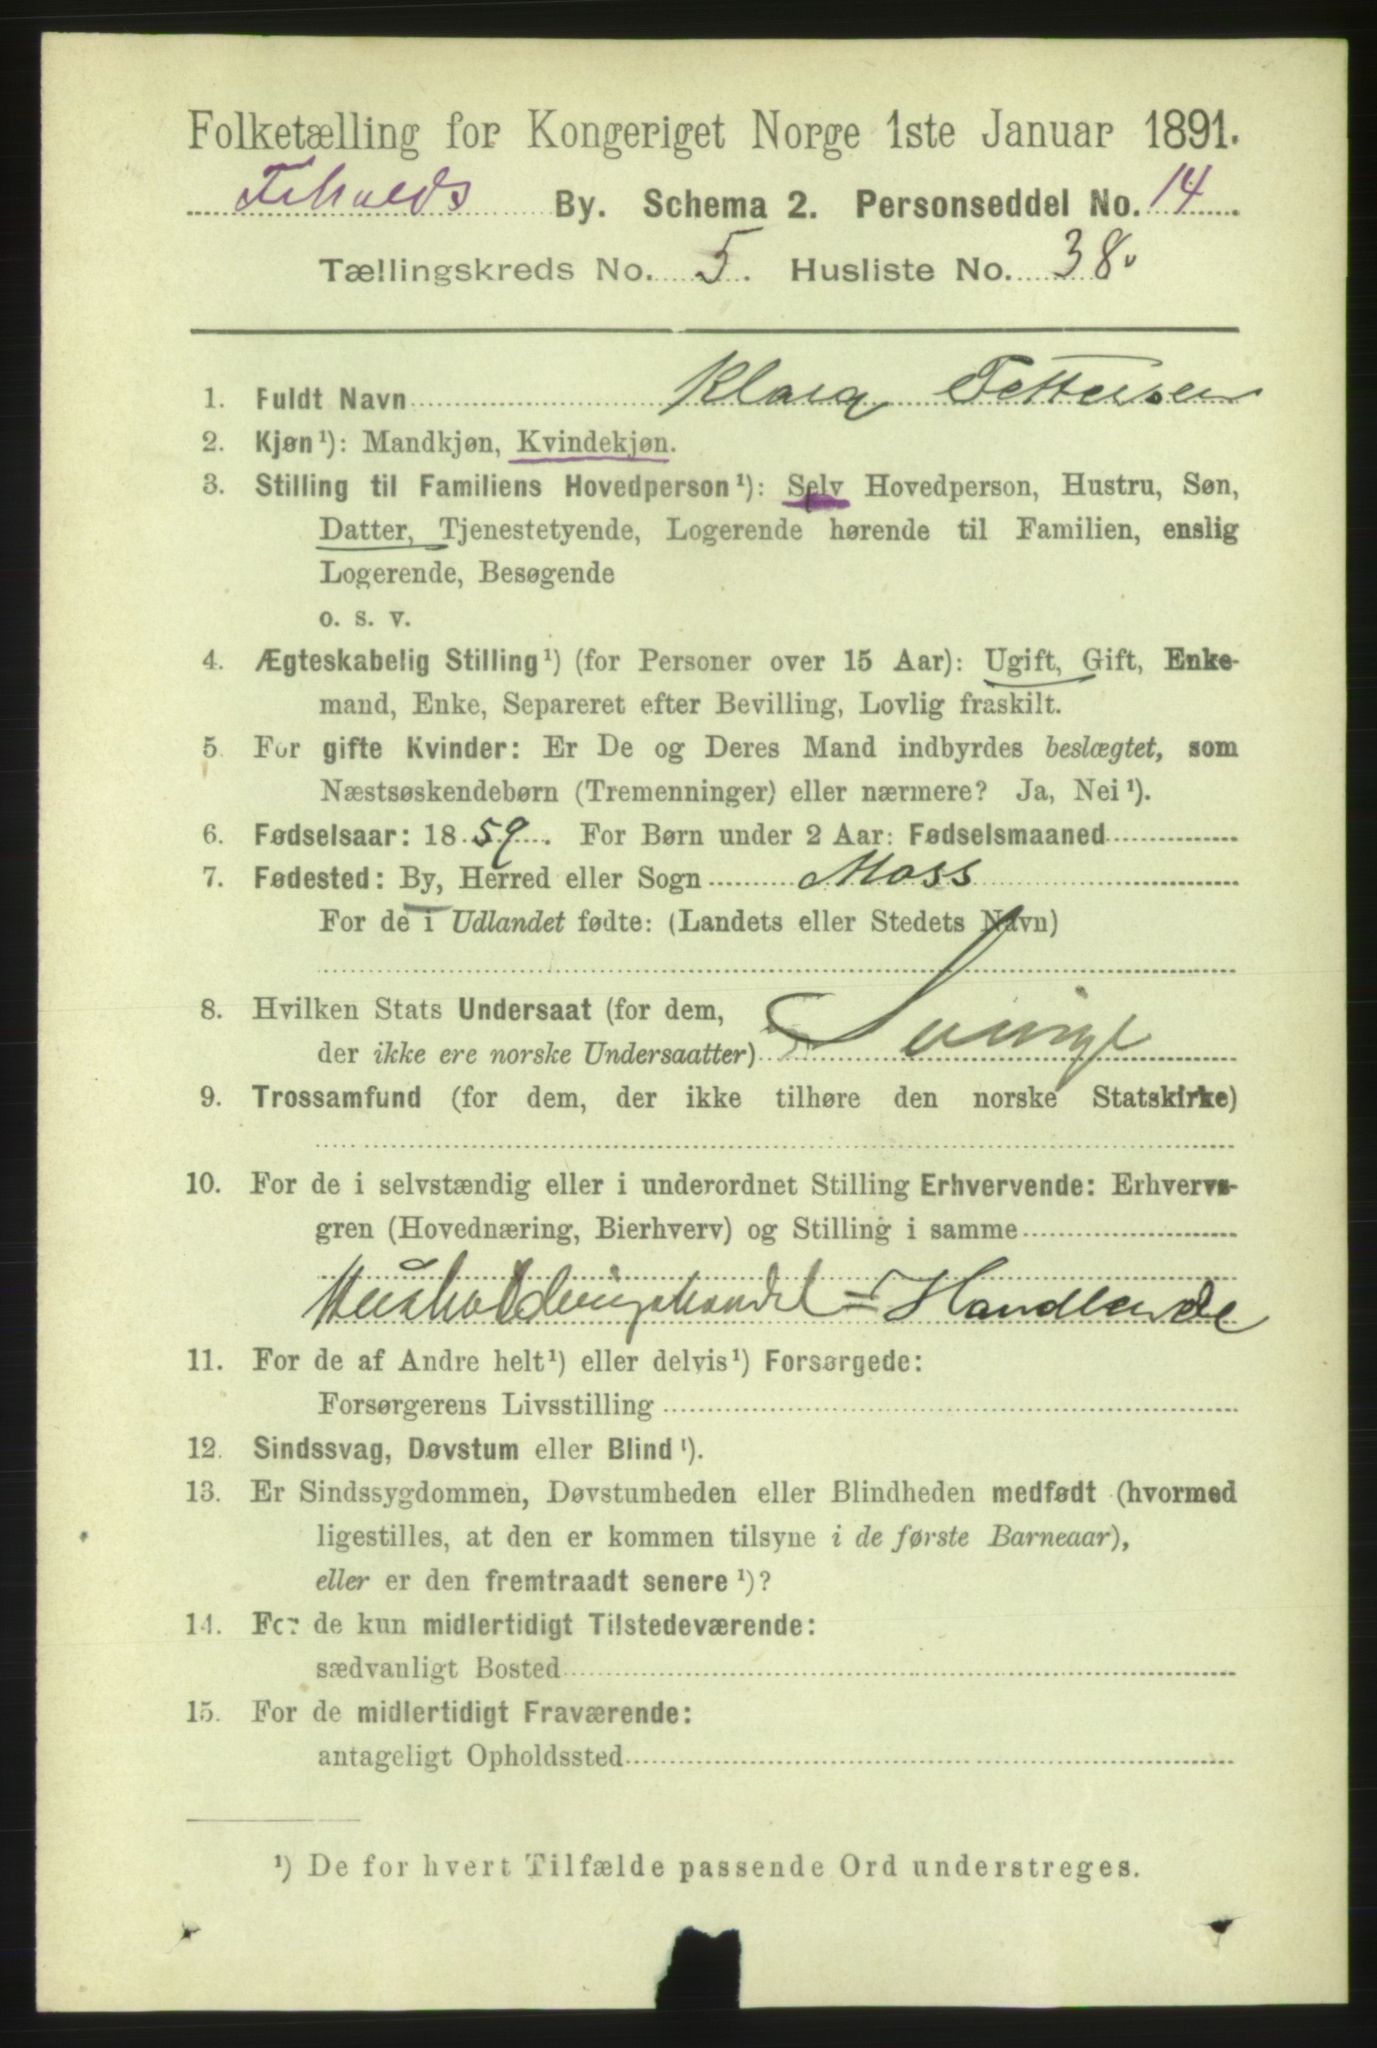 Folketælling for Kongeriget Norge 1ste Januar 1891.
Fr.halds By. Schema 2. Personseddel No. 14
Tællingskreds No. 5. Husliste No. 38.
1. Fuldt Navn Klara Pettersen
2. Kjøn¹): Mandkjøn, Kvindekjøn.
3. Stilling til Familiens Hovedperson¹): Selv Hovedperson, Hustru, Søn,
Datter, Tjenestetyende, Logerende hørende til Familien, enslig
Logerende, Besøgende
o. s. v.
4. Ægteskabelig Stilling¹) (for Personer over 15 Aar): Ugift, Gift, Enke-
mand, Enke, Separeret efter Bevilling, Lovlig fraskilt.
5. For gifte Kvinder: Er De og Deres Mand indbyrdes beslægtet, som
Næstsøskendebørn (Tremenninger) eller nærmere? Ja, Nei¹).
6. Fødselsaar: 1859. For Børn under 2 Aar: Fødselsmaaned
7. Fødested: By, Herred eller Sogn Moss
For de i Udlandet fødte: (Landets eller Stedets Navn)
8. Hvilken Stats Undersaat (for dem,
der ikke ere norske Undersaatter)
9. Trossamfund (for dem, der ikke tilhøre den norske Statskirke)
10. For de i selvstændig eller i underordnet Stilling Erhvervende: Erhvervs-
gren (Hovednæring, Bierhverv) og Stilling i samme
Husholdningshandel = Handlende
11. For de af Andre helt¹) eller delvis¹) Forsørgede:
Forsørgerens Livsstilling
12. Sindssvag, Døvstum eller Blind¹).
13. Er Sindssygdommen, Døvstumheden eller Blindheden medfødt (hvormed
ligestilles, at den er kommen tilsyne i de første Barneaar),
eller er den fremtraadt senere¹)?
14. For de kun midlertidigt Tilstedeværende:
sædvanligt Bosted
15. For de midlertidigt Fraværende:
antageligt Opholdssted
¹) De for hvert Tilfælde passende Ord understreges.